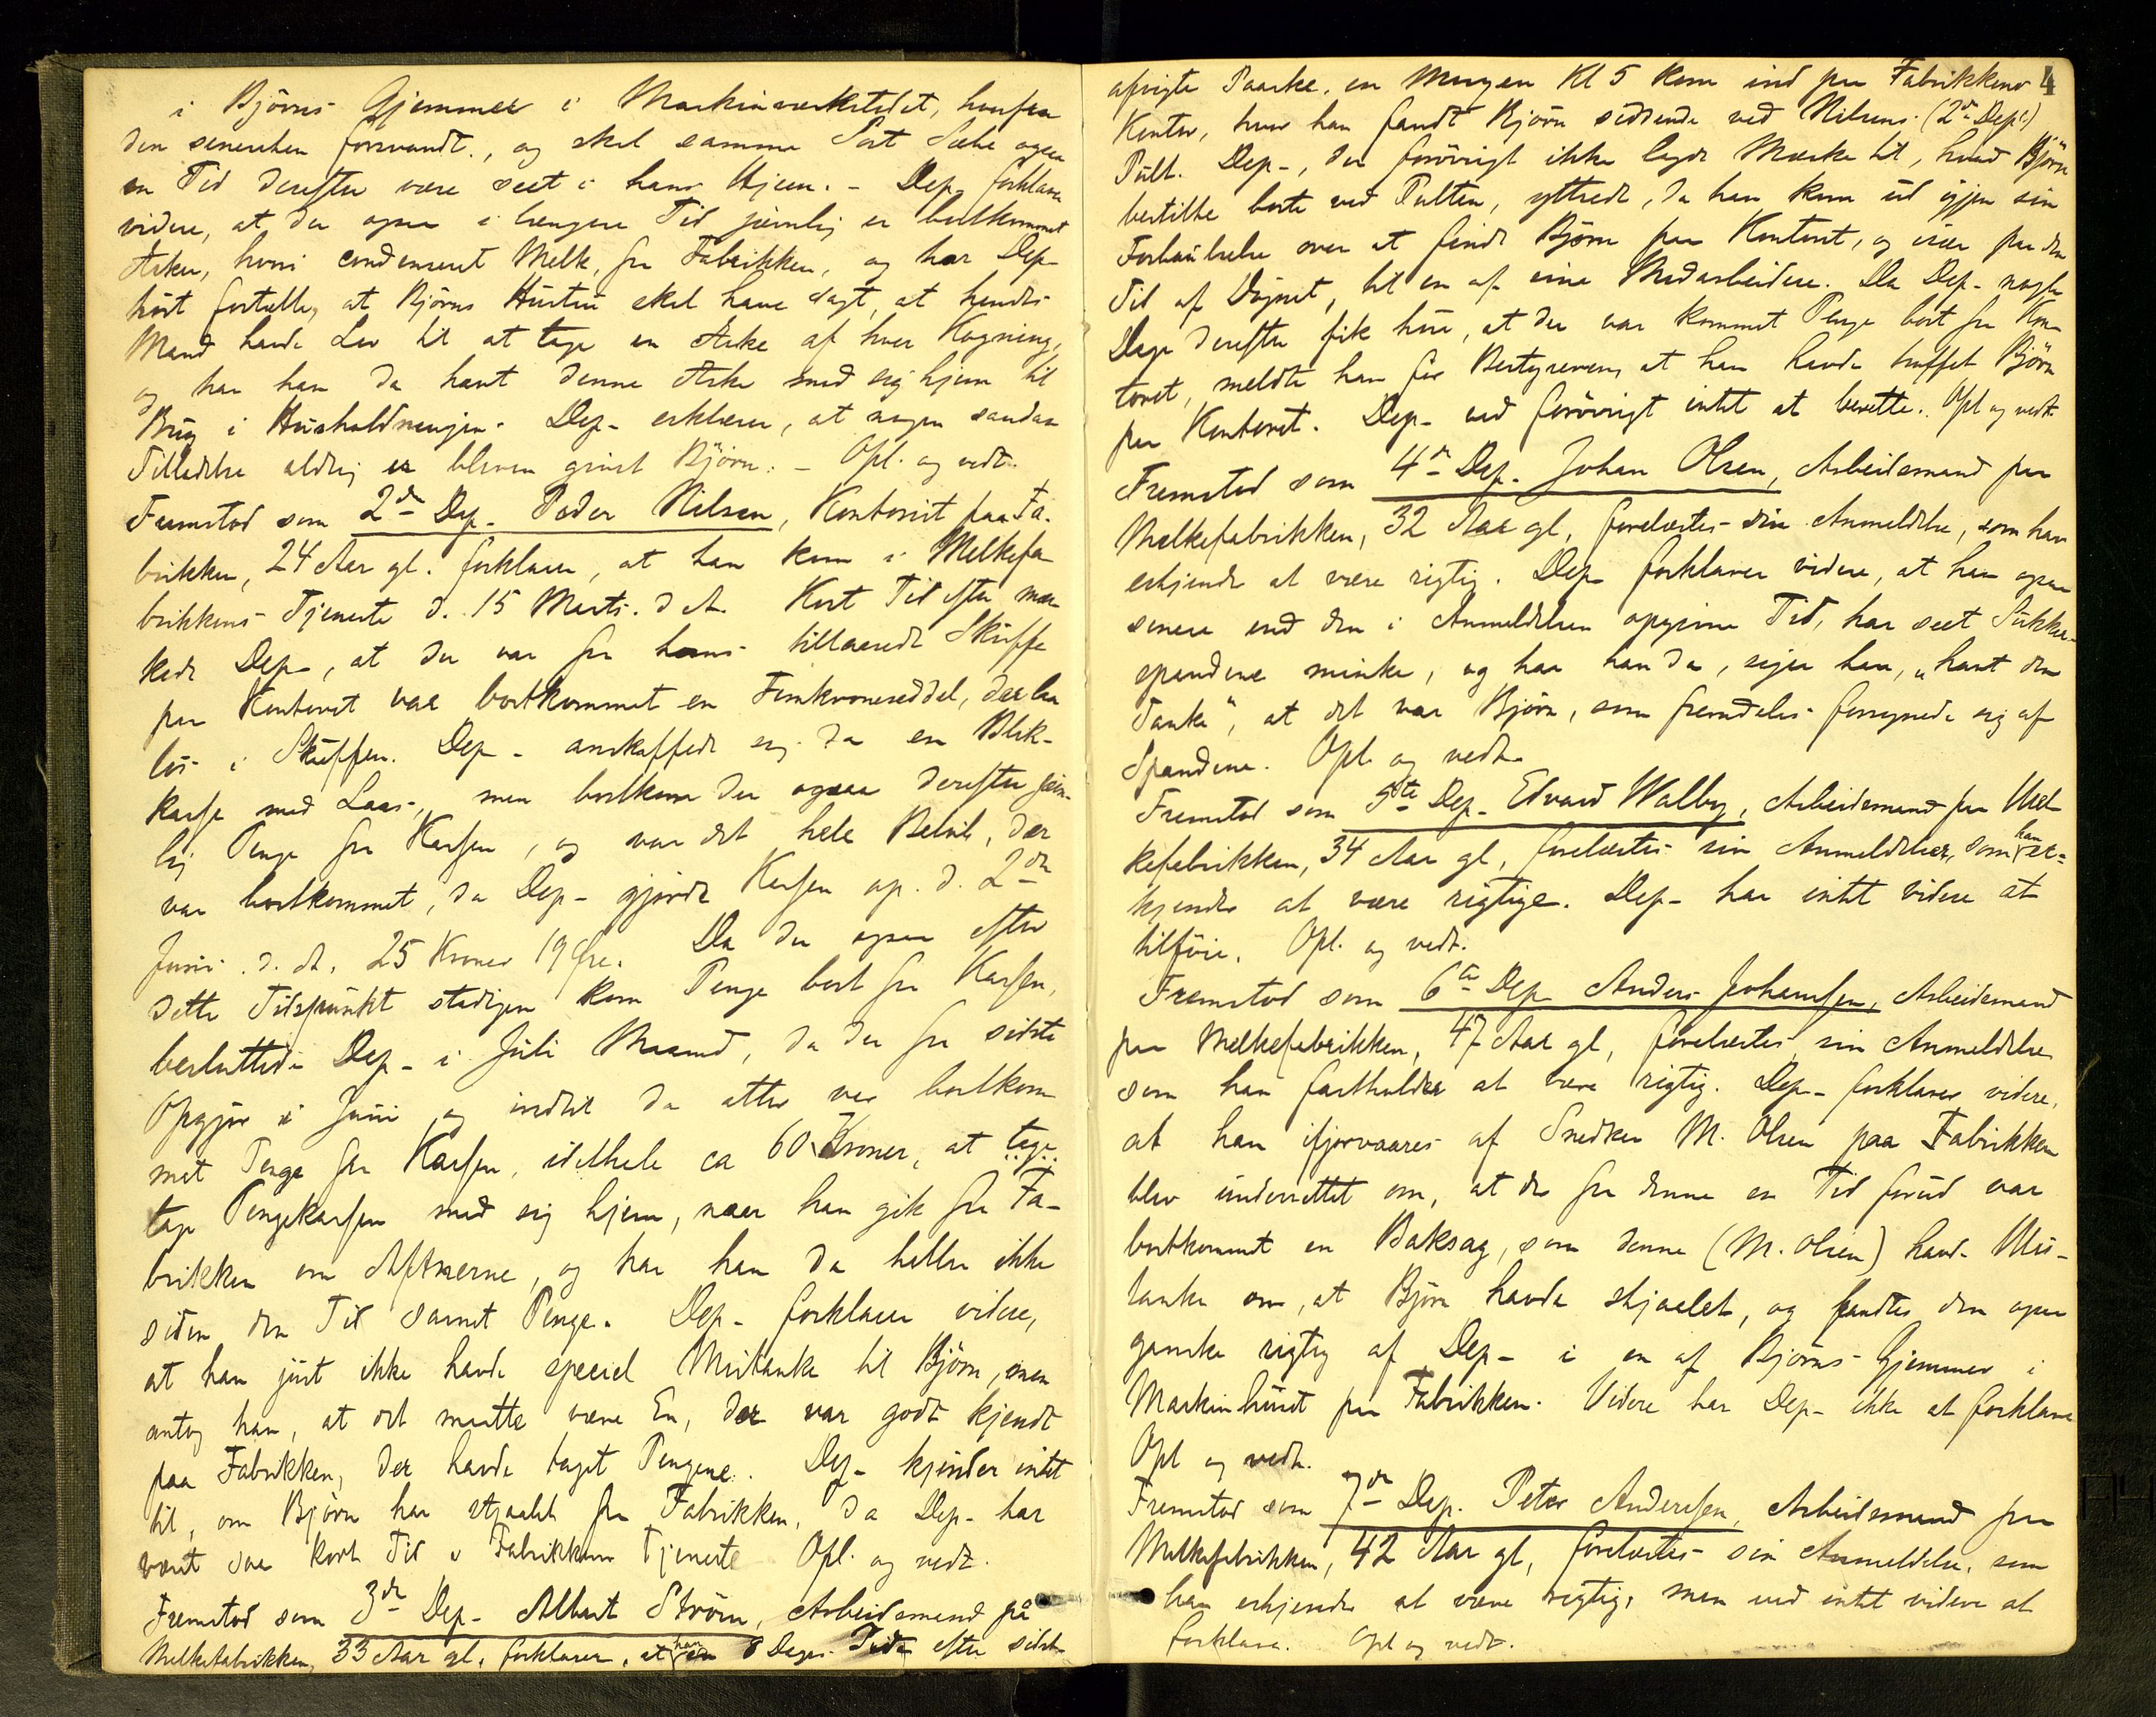 i Björns Gjemmer i Maskinværkstedet, hvorfra
den senerehen forsvandt., og skal samme Sort Sæbe ogsaa
en Tid derefter være seet i hans Hjem. - Dep. forklarer
videre, at der ogsaa i længere Tid jevnlig er bortkommet
Æsker, hvori condenseret Melk, fra Fabrikken, og har Dep-
hört fortælle, at Björns Hustru skal have sagt, at hendes
Mand havde Lov til at tage en Æske af hver Kogning,
og har han da havt denne Æske med sig hjem til
Brug i Husholdningen. Dep- erklærer, at nogen saadan
Tilladelse aldrig er bleven givet Björn. - Opl. og vedt.
Fremstod som 2den Dep- Peder Nilsen, Kontorist paa Fa-
brikken, 24 Aar gl. forklarer, at han kom i Melkefa-
brikkens Tjeneste d. 15 Marts. d. A. Kort Tid efter mær-
kede Dep-, at der var fra hans tillaasede Skuffe
paa Kontoret var bortkommet en Femkroneseddel, der laa
lös i Skuffen. Dep- anskaffede sig da en Blik-
kasse med Laas, men bortkom der ogsaa derefter jevn-
lig Penge fra Kassen, og var det hele Belöb, der
var bortkommet, da Dep- gjorde Kassen op. d. 2den
Juni. d. A. 25 Kroner 19 Øre. Da der ogsaa efter
dette Tidspunkt stadigen kom Penge bort fra Kassen,
besluttede Dep- i Juli Maaned, da der fra sidste
Opgjör i Juni og indtil da atter var bortkom-
met Penge fra Kassen, idethele ca 60 Kroner, at tage
tage Pengekassen med sig hjem, naar han gik fra Fa-
brikken om Aftnerne, og har han da heller ikke
siden den Tid savnet Penge. Dep- forklarer videre,
at han just ikke havde speciel Mistanke til Björn, men
antog han, at det maatte være En, der var godt kjendt
paa Fabrikken, der havde taget Pengene. Dep- kjender intet
til, om Björn har stjaalet fra Fabrikken, da Dep- har
været saa kort Tid i Fabrikkens Tjeneste Opl. og vedt.
Fremstod som 3die Dep- Albert Ström, Arbeidsmand på
Melkefabrikken, 33 Aar gl. forklarer, at han en 8 Dages Tid efter sidst-
afvigte Paaske, en Morgen Kl 5 kom ind paa Fabrikkens 4
Kontor, hvor han fandt Björn siddende ved Nilsens (2den Dep:)
Pult. Dep-, der forövrigt ikke lagde Mærke til, hvad Björn
bestilte borte ved Pulten, yttrede, da han kom ud igjen sin
Forbauselse over at finde Björn paa Kontoret, og især paa den
Tid af Dögnet, til en af sine Medarbeidere. Da Dep- nogle
Dage derefter fik höre, at der var kommet Penge bort fra Kon-
toret, meldte han for Bestyreren, at han havde truffet Björn
paa Kontoret. Dep- ved forövrigt intet at berette. Opl og vedt.
Fremstod som 4de Dep- Johan Olsen, Arbeidsmand paa
Melkefabrikken, 32 Aar gl, forelæstes sin Anmeldelse, som han
erkjendte at være rigtig. Dep- forklarer videre, at han ogsaa
senere end den i Anmeldelsen opgivne Tid, har seet Sukker-
spandene minke, og har han da, siger han, „havt den
Tanke", at det var Björn, som fremdeles forsynede sig af
Spandene. Opl og vedt.
Fremstod som 5te Dep- Edvard Walby, Arbeidsmand paa Mel-
kefabrikken, 34 Aar gl, forelæstes sin Anmeldelse, som han er-
kjendte at være rigtige. Dep- har intet videre at
tilföie. Opl. og vedt.
Fremstod som 6te Dep Anders Johansen, Arbeidsmand
paa Melkefabrikken, 47 Aar gl, forelæstes sin Anmeldelse
som han fastholder at være rigtig. Dep- forklarer videre,
at han ifjorvaares af Snedker M. Olsen paa Fabrikken
blev underrettet om, at der fra denne en Tid forud var
bortkommet en Baksag, som denne (M. Olsen) havde Mis-
tanke om, at Björn havde stjaalet, og fandtes den ogsaa
ganske rigtig af Dep- i en af Björns Gjemmer i
Maskinhuset paa Fabrikken. Videre har Dep- ikke at forklare
Opl og vedt.
Fremstod som 7de Dep. Peter Andersen, Arbeidsmand paa
Melkefabrikken, 42 Aar gl, forelæstes sin Anmeldelse, som
han erkjendte at være rigtig, men ved intet videre at
forklare. Opl og vedt.